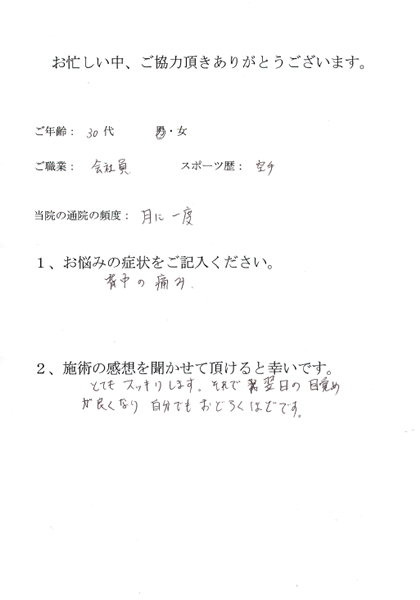 お忙しい中、ご協力頂きありがとうございます。
ご年齢： 30代 男・女
ご職業： 会社員 スポーツ歴： 空手
当院の通院の頻度： 月に一度
１、お悩みの症状をご記入ください。
背中の痛み．
２、施術の感想を聞かせて頂けると幸いです。
とてもスッキリします。それで翌日の目覚め
が良くなり自分でもおどろくほどです。